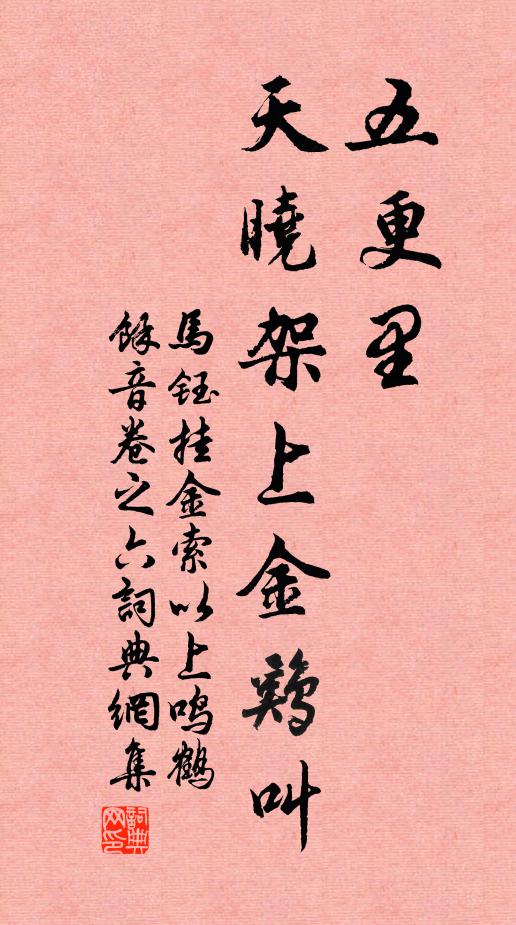 五更里
天曉架上金鷄叫
馬鈺挂金索以上鸣鶴
餘音卷之六詞典網集
詞典
网印